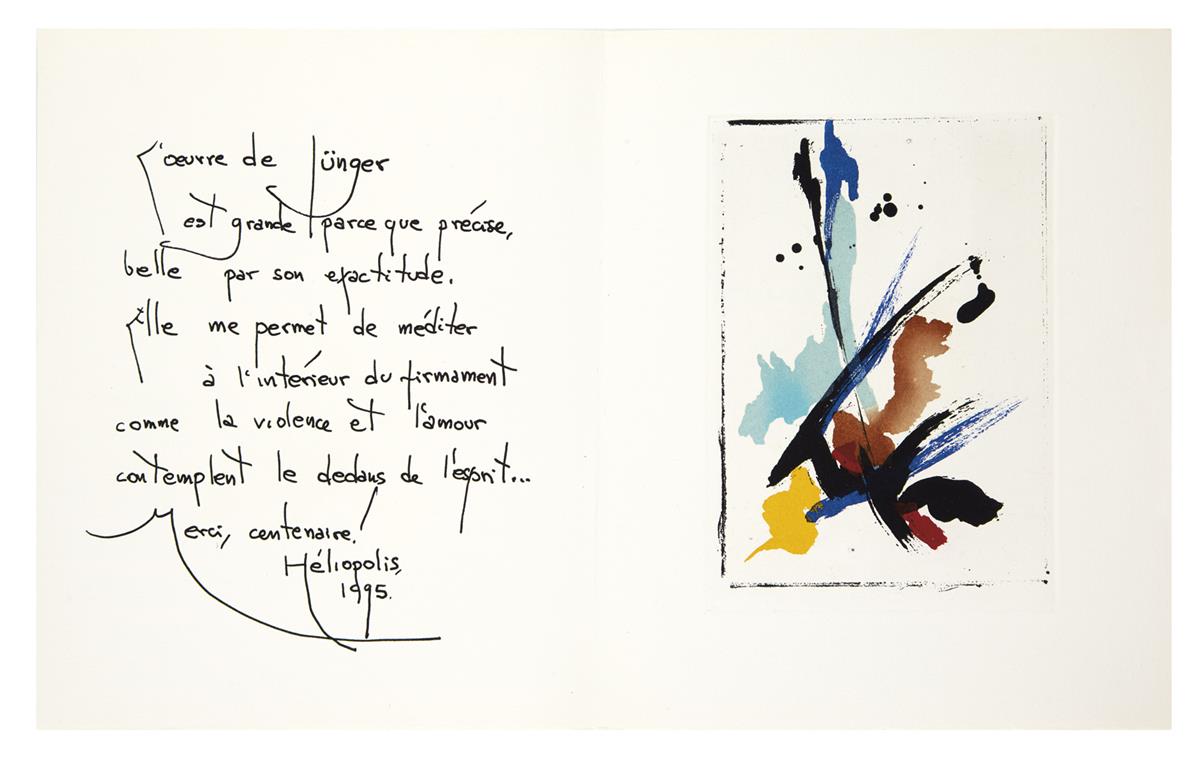 L'œuvre de Jünger
est grande parce que précise,
belle par son exactitude.
Elle me permet de méditer
à l'intérieur du firmament
comme la violence et l'amour
contemplent le dedans de l'esprit...
Merci, centenaire!
Héliopolis,
1995.